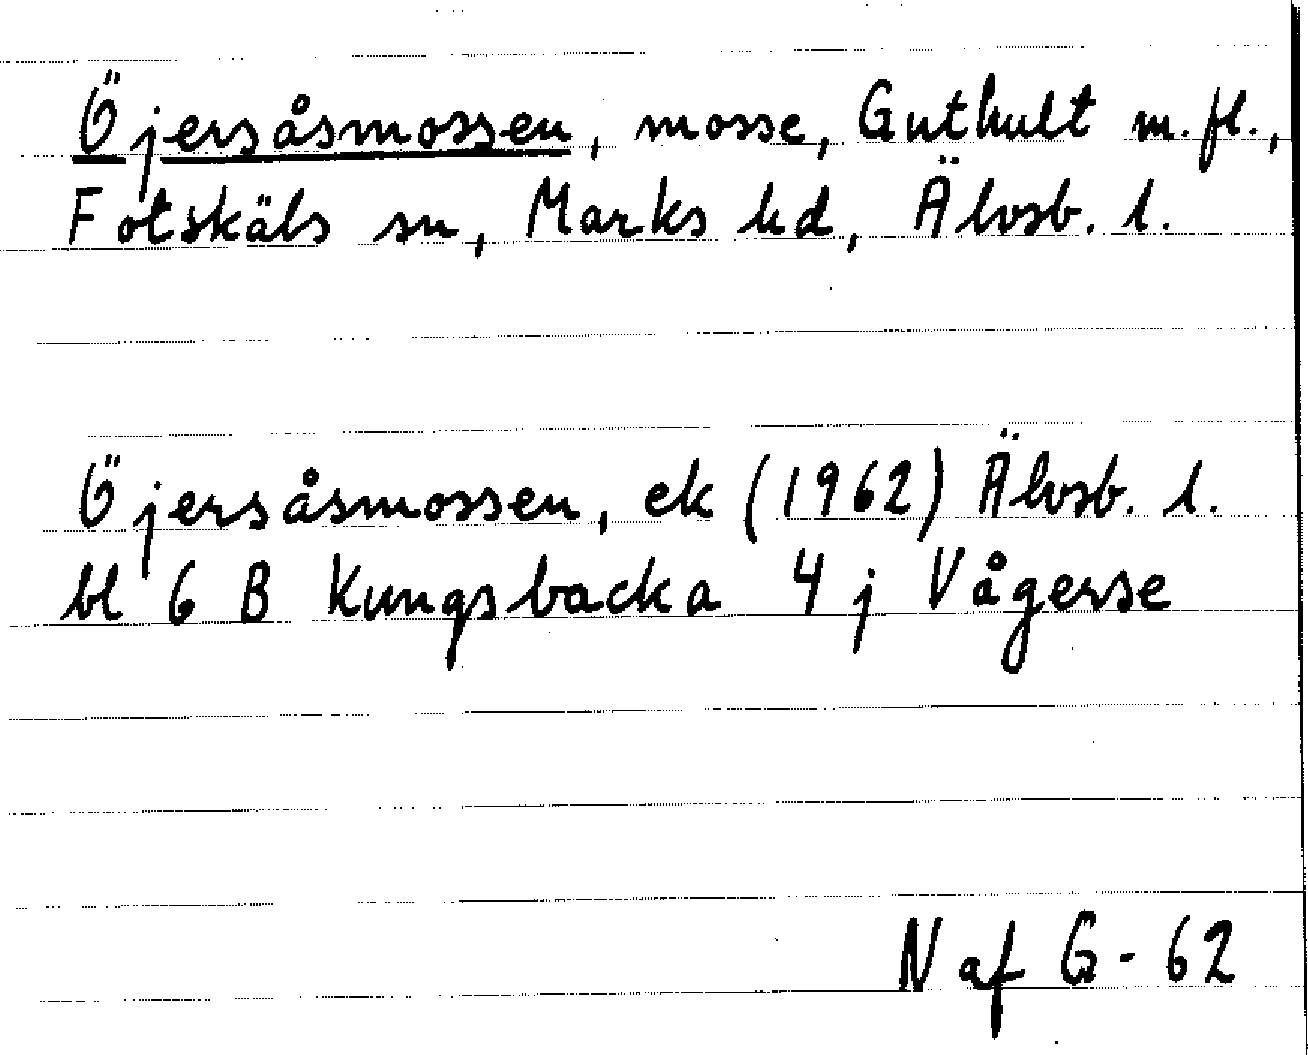 Öjersåsmossen, mosse, Guthult m.fl.,
Fotskäls sn, Marks hd, Älvsb. l.
Öjersåsmossen, ek (1962) Älvsb. l.
bl 6 B Kungsbacka 4 j Vågerse
N af G-62